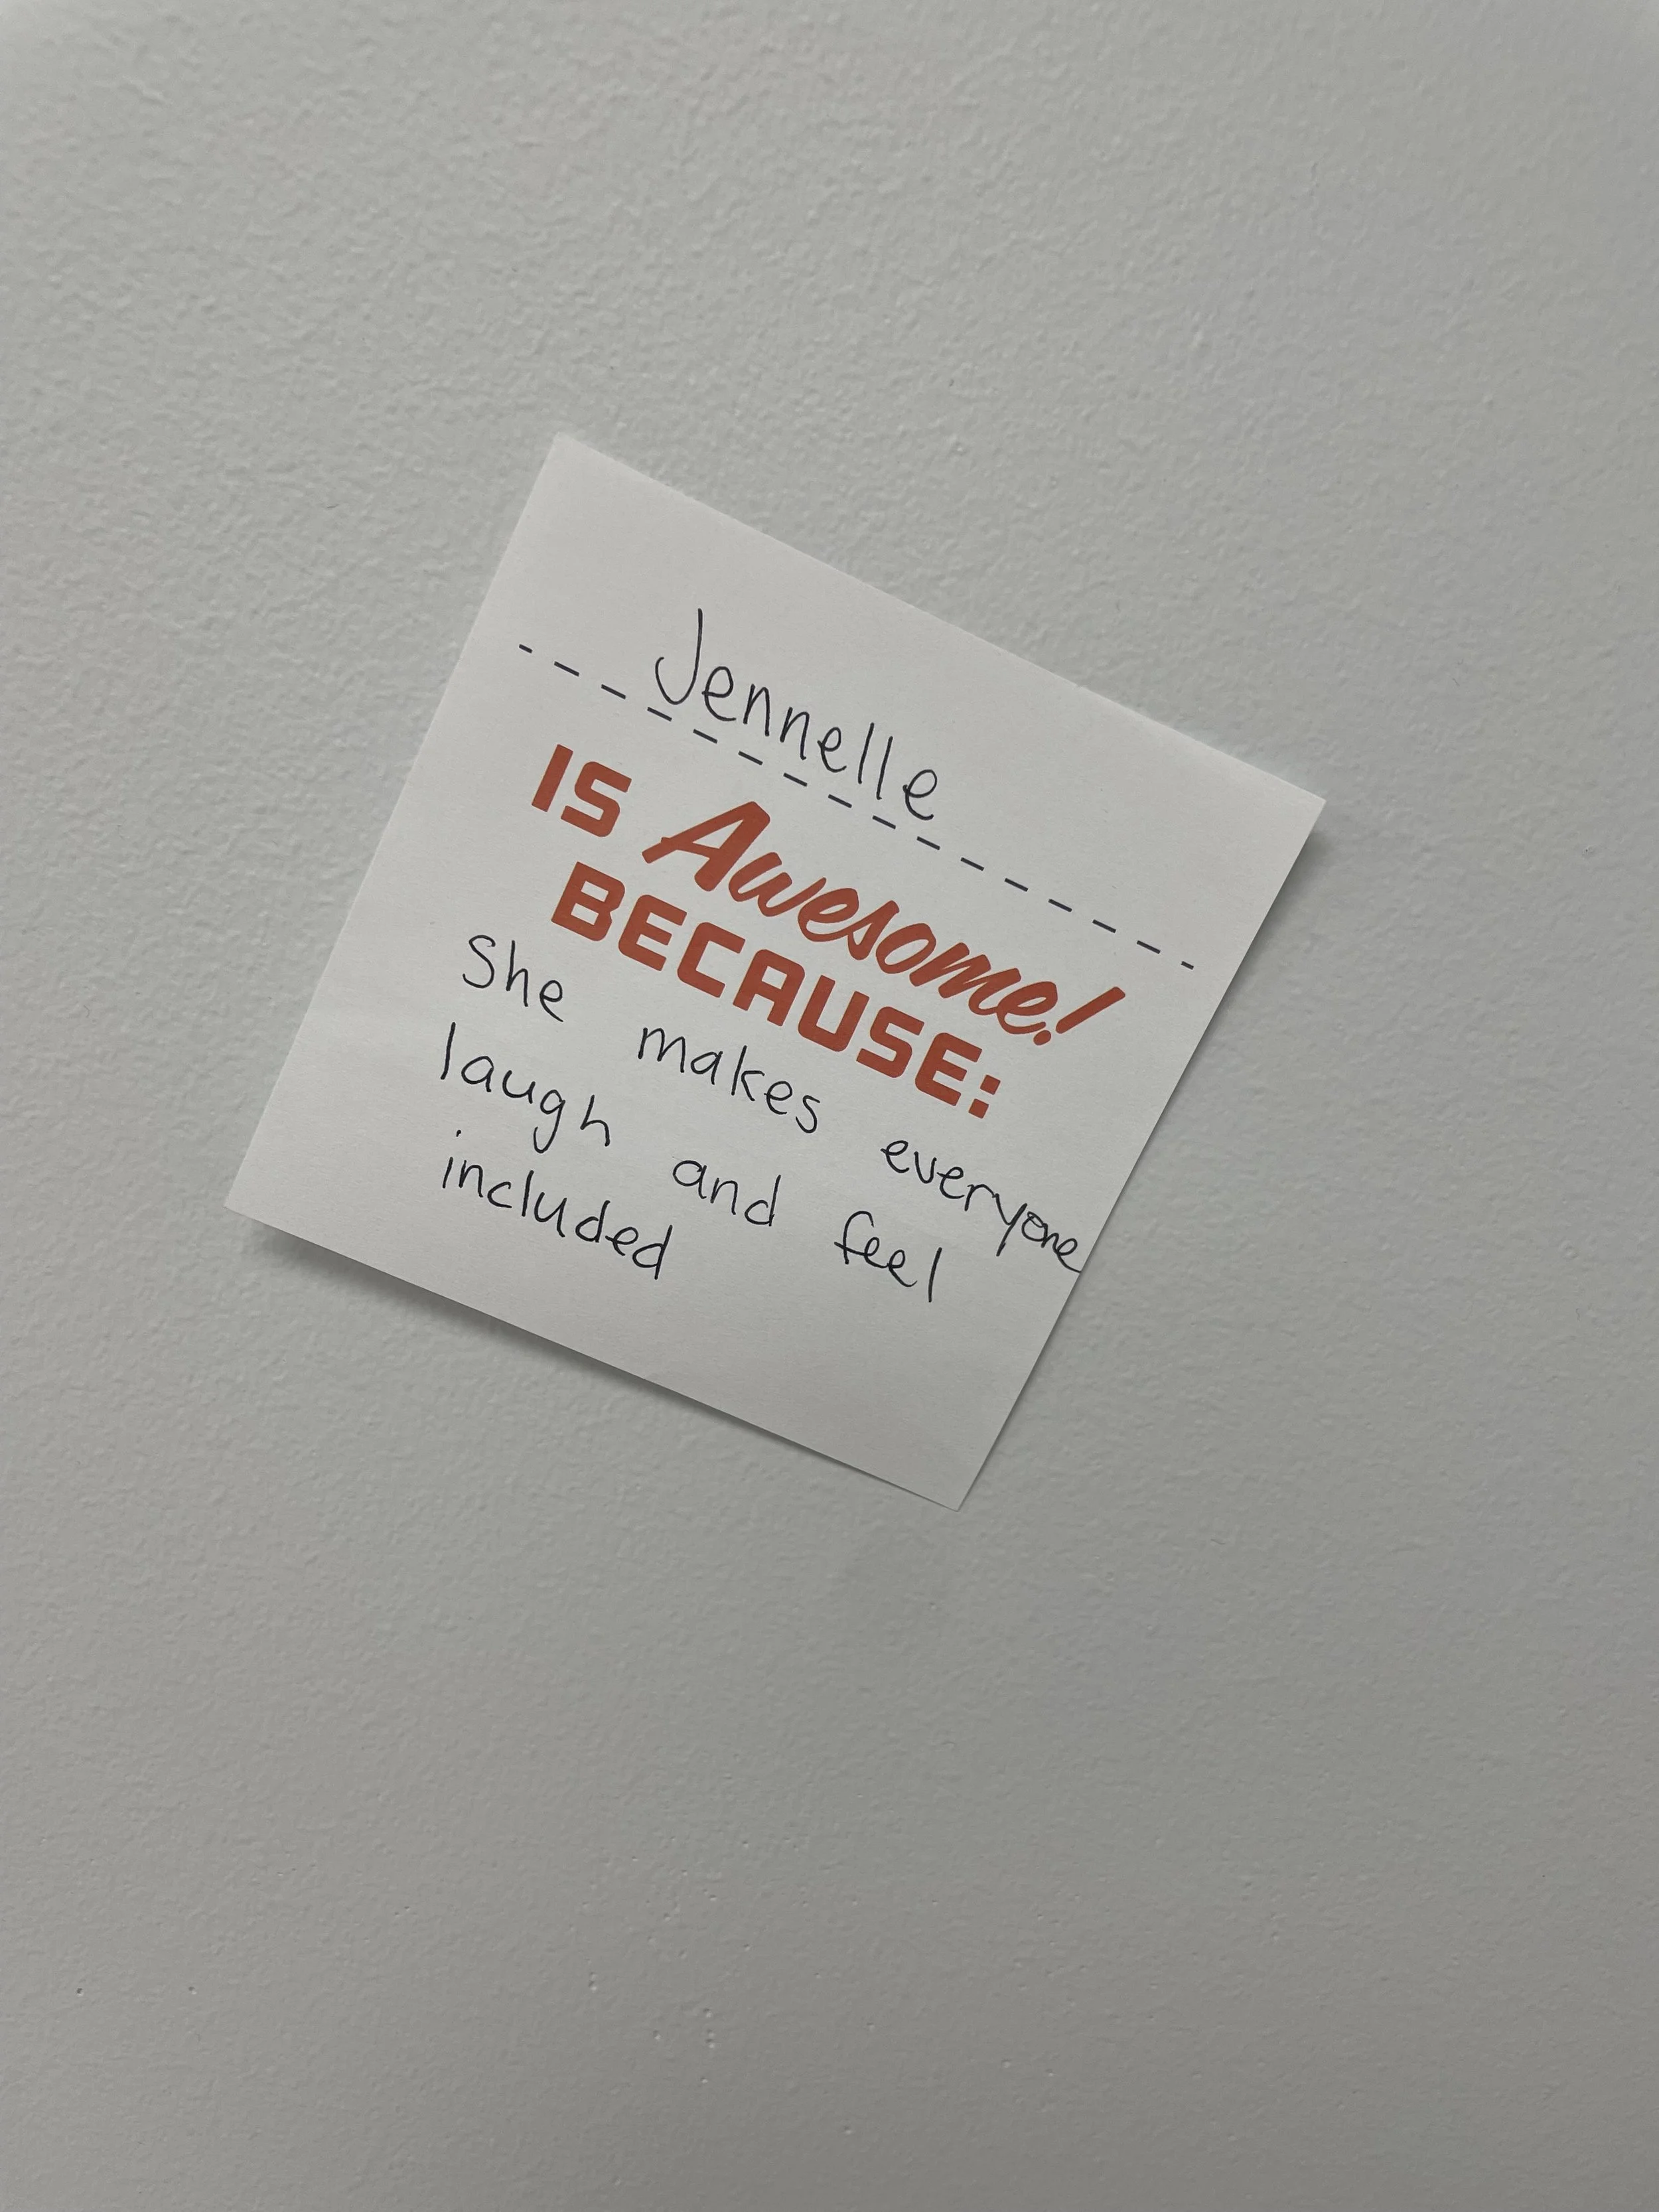 Jennelle
IS Awesome!
BECAUSE:
She makes everyone
laugh and feel
included